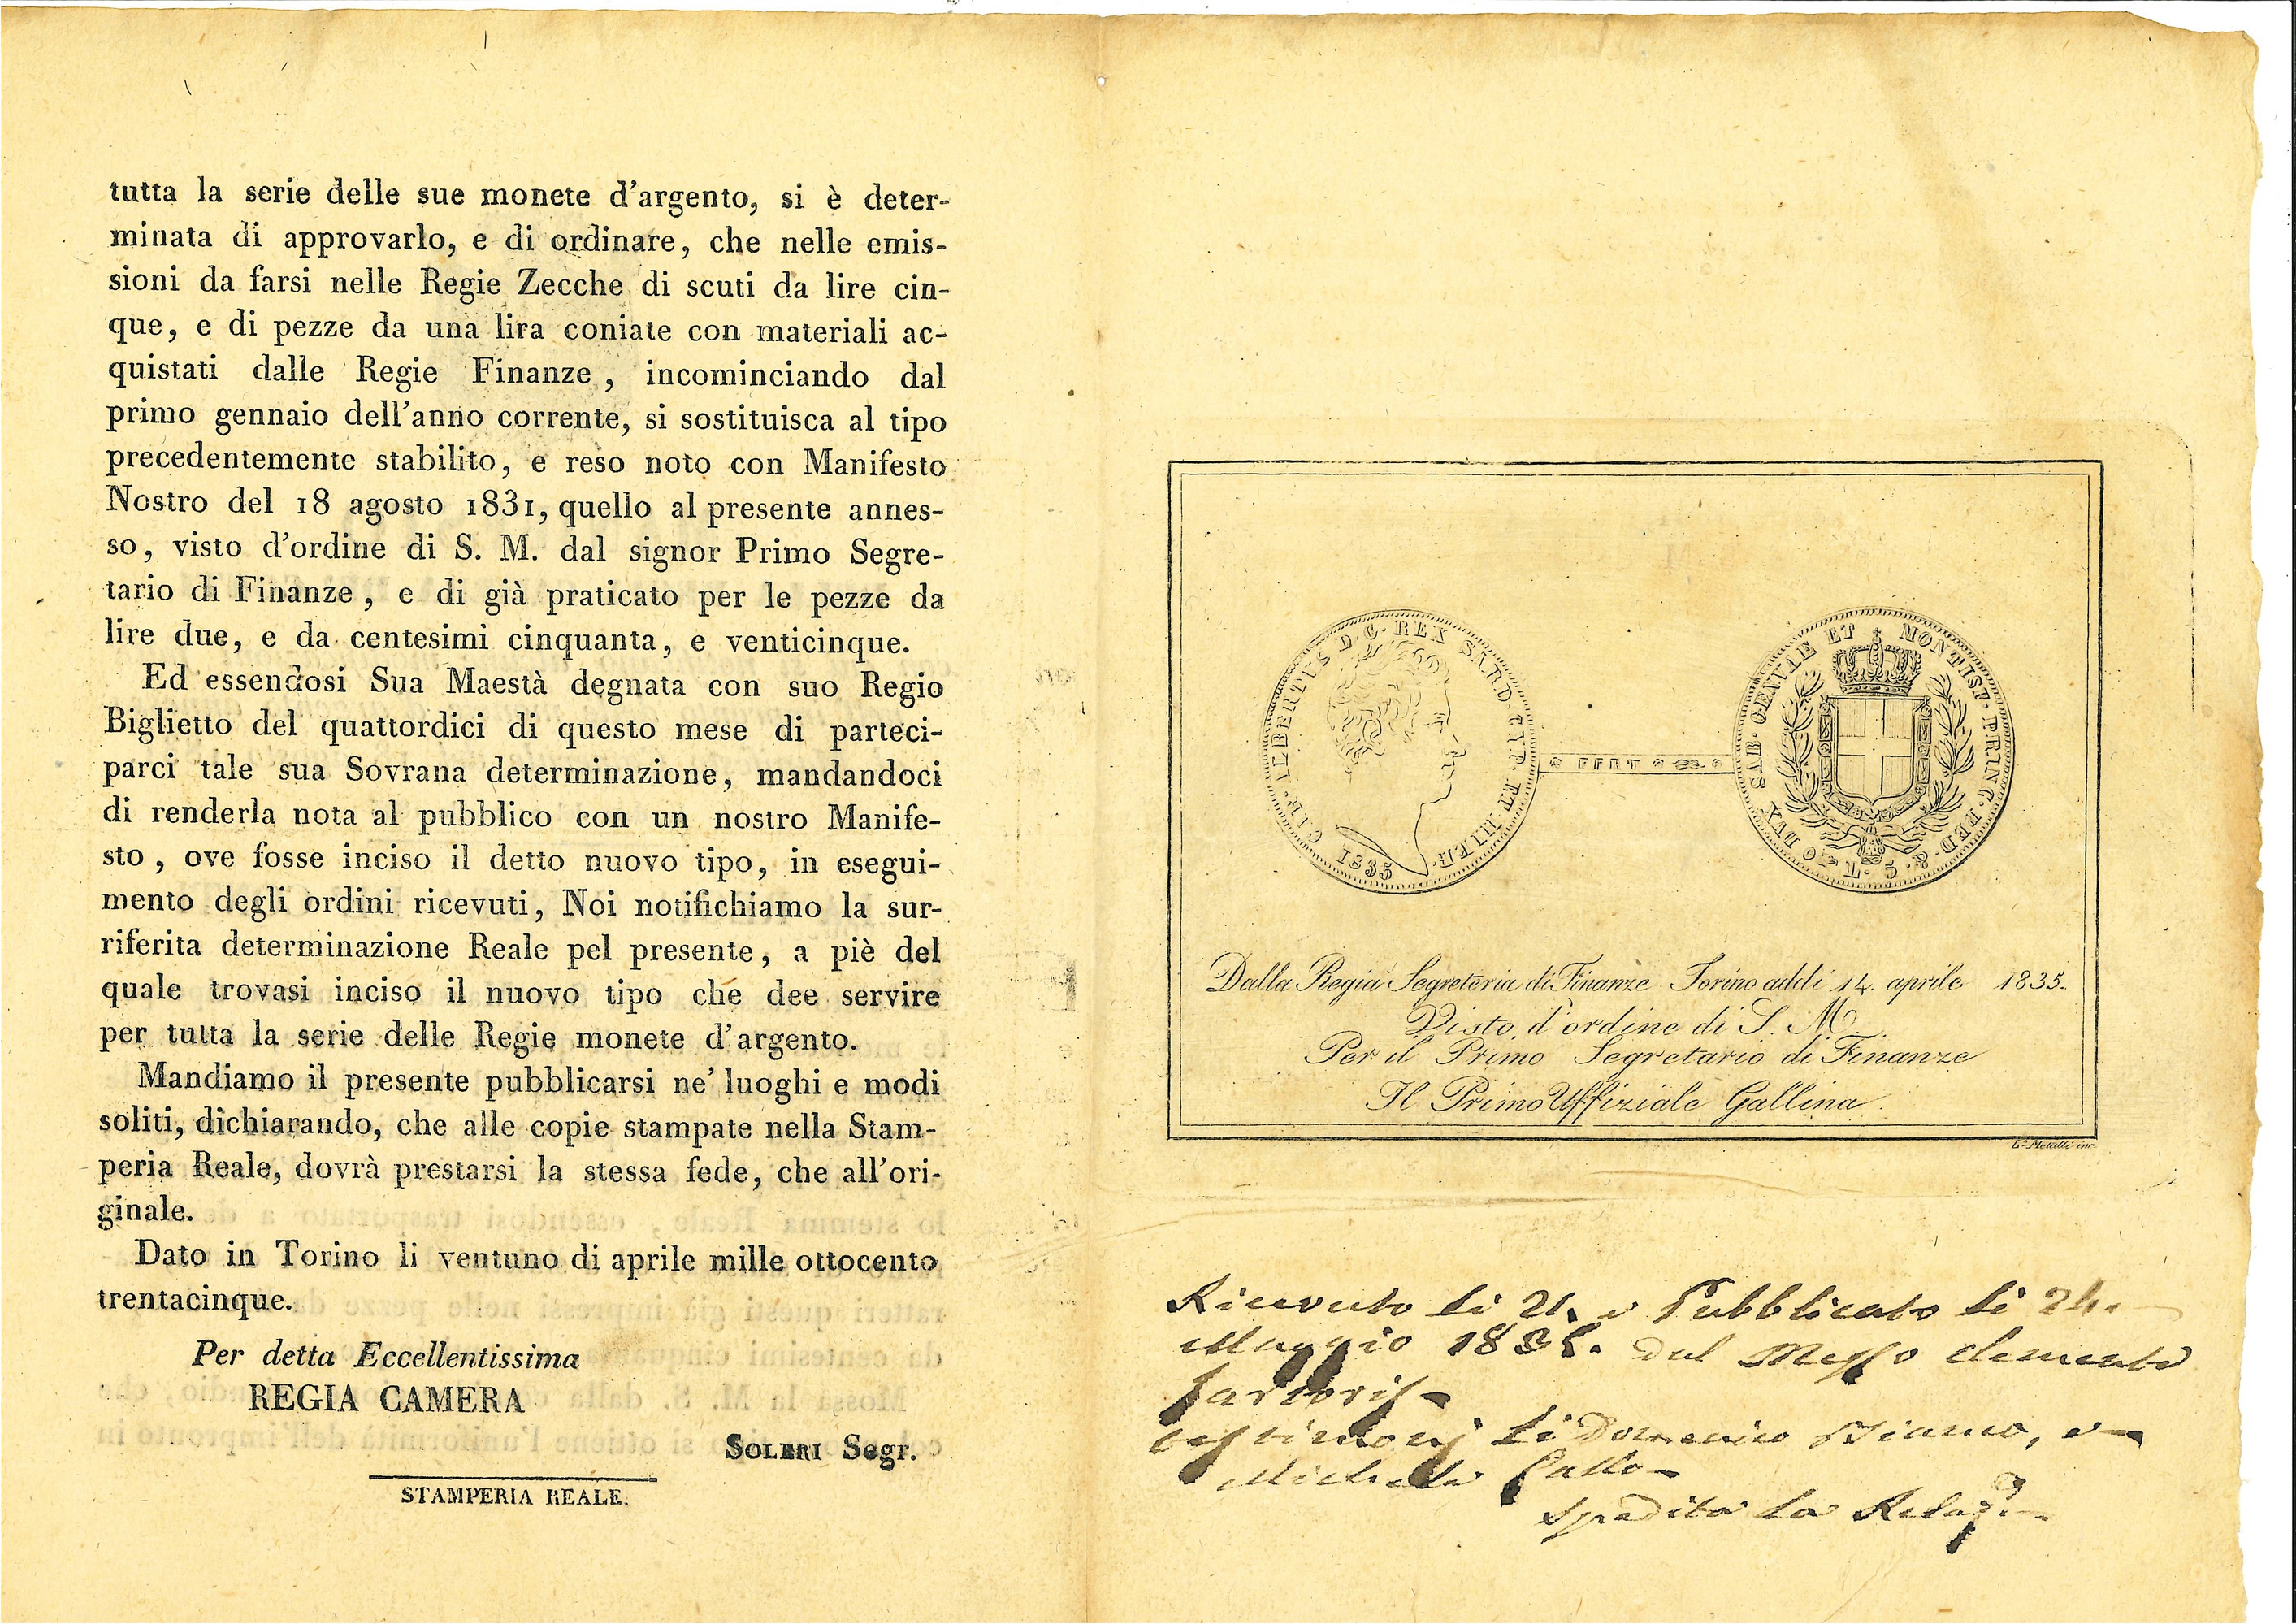 tutta la serie delle sue monete d'argento, si è deter-
minata di approvarlo, e di ordinare, che nelle emis-
sioni da farsi nelle Regie Zecche di scuti da lire cin-
que, e di pezze da una lira coniate con materiali ac-
quistati dalle Regie Finanze, incominciando dal
primo gennaio dell'anno corrente, si sostituisca al tipo
precedentemente stabilito, e reso noto con Manifesto
Nostro del 18 agosto 1831, quello al presente annes-
so, visto d'ordine di S. M. dal signor Primo Segre-
tario di Finanze, e di già praticato per le pezze da
lire due, e da centesimi cinquanta, e venticinque.
Ed essendosi Sua Maestà degnata con suo Regio
Biglietto del quattordici di questo mese di parteci-
parci tale sua Sovrana determinazione, mandandoci
di renderla nota al pubblico con un nostro Manife-
sto, ove fosse inciso il detto nuovo tipo, in esegui-
mento degli ordini ricevuti, Noi notifichiamo la sur-
riferita determinazione Reale pel presente, a piè del
quale trovasi inciso il nuovo tipo che dee servire
per tutta la serie delle Regie monete d'argento.
Mandiamo il presente pubblicarsi ne' luoghi e modi
soliti, dichiarando, che alle copie stampate nella Stam-
peria Reale, dovrà prestarsi la stessa fede, che all'ori-
ginale.
Dato in Torino li ventuno di aprile mille ottocento
trentacinque.
Per detta Eccellentissima
REGIA CAMERA
SOLERI Segr.
STAMPERIA REALE.
CAR. ALBERTVS D.G. REX SARD. CYP. ET HIER.
1835
FERT
DVX SAB. GENVAE ET MONTISF. PRINC. PED. &
L. 5
Dalla Regia Segreteria di Finanze Torino addi 14. aprile 1835.
Visto d'ordine di S. M.
Per il Primo Segretario di Finanze
Il Primo Uffiziale Gallina.
Ricevuto li 21. e Pubblicato li 24.
Maggio 1835. dal Messo Clemente
li Domenico e
Michele Gallo
Spedita la